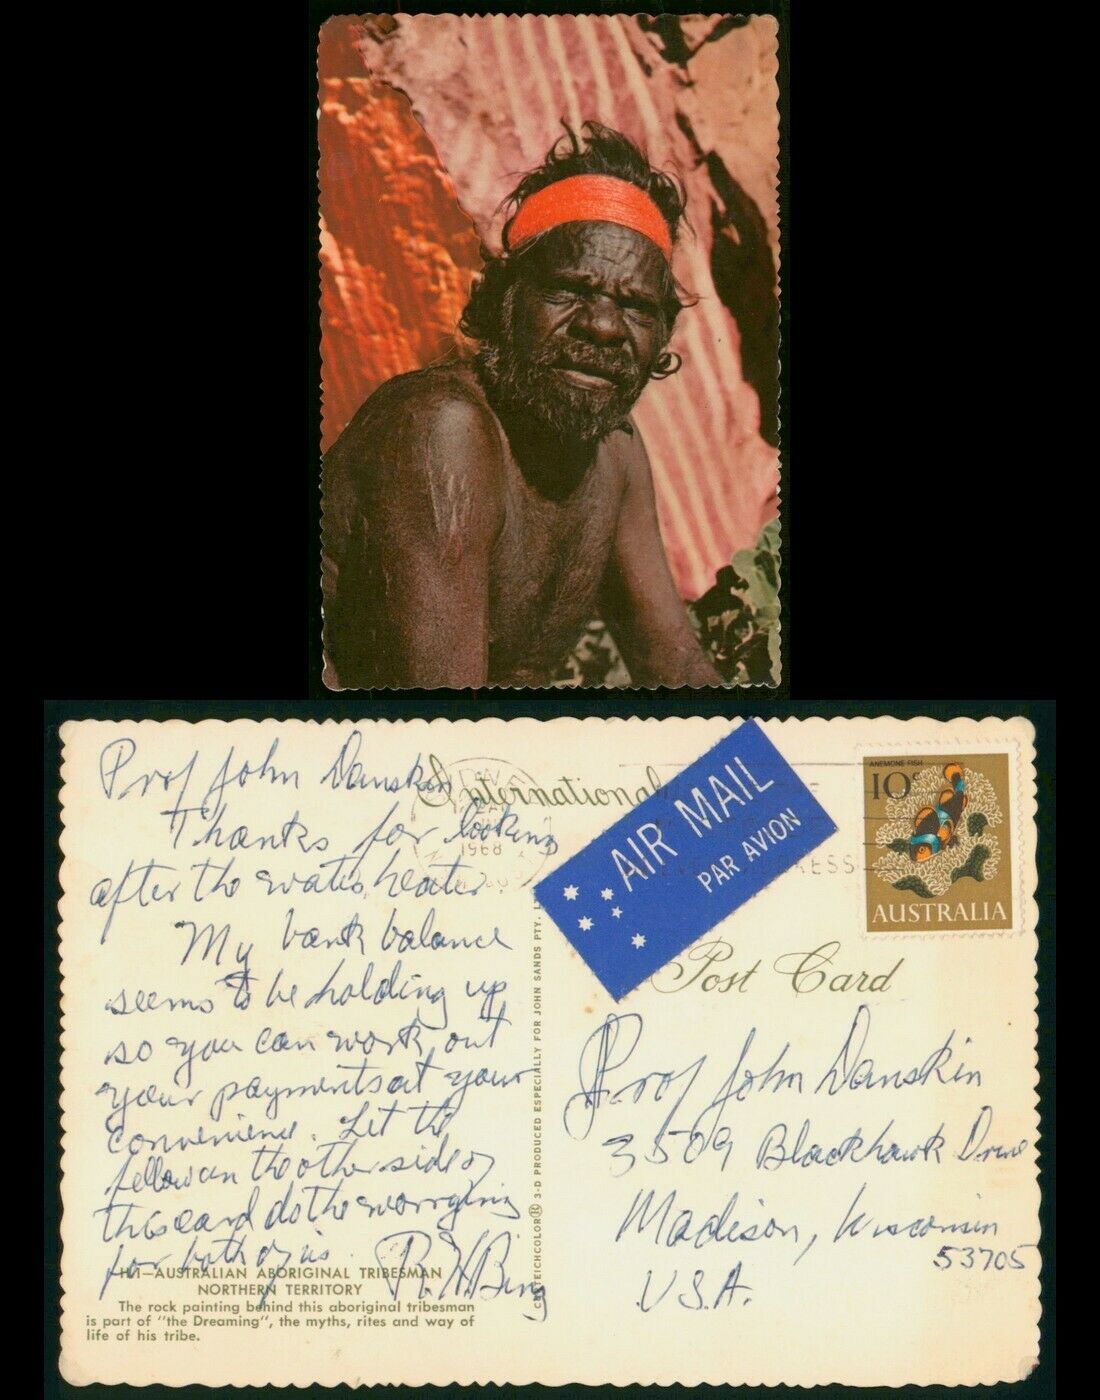 Prof John Danskin
Thanks for looking
after the water heater.
My bank balance
seems to be holding up
so you can work out
your payments at your
convenience. Let the
fellow on the other side of
this card do the worrying
for both of us.
R. H. Bing
H/1—AUSTRALIAN ABORIGINAL TRIBESMAN
NORTHERN TERRITORY
The rock painting behind this aboriginal tribesman
is part of "the Dreaming", the myths, rites and way of
life of his tribe.
CURTEICHCOLOR® 3-D PRODUCED ESPECIALLY FOR JOHN SANDS PTY.
International
1968
AIR MAIL
PAR AVION
Post Card
ANEMONE FISH
10c
AUSTRALIA
Prof John Danskin
3509 Blackhawk Drive
Madison, Wisconsin
53705
U.S.A.